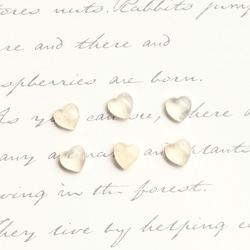 tores nuts. Rabbits jump
re and there and
spberries are born.
As you can see, there a
any animals and plants
iving in the forest.
They live by helping e